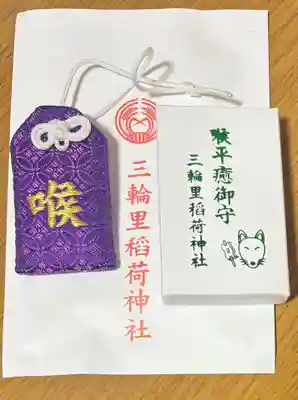 喉
三輪里稲荷神社
喉平癒御守
三輪里稲荷神社